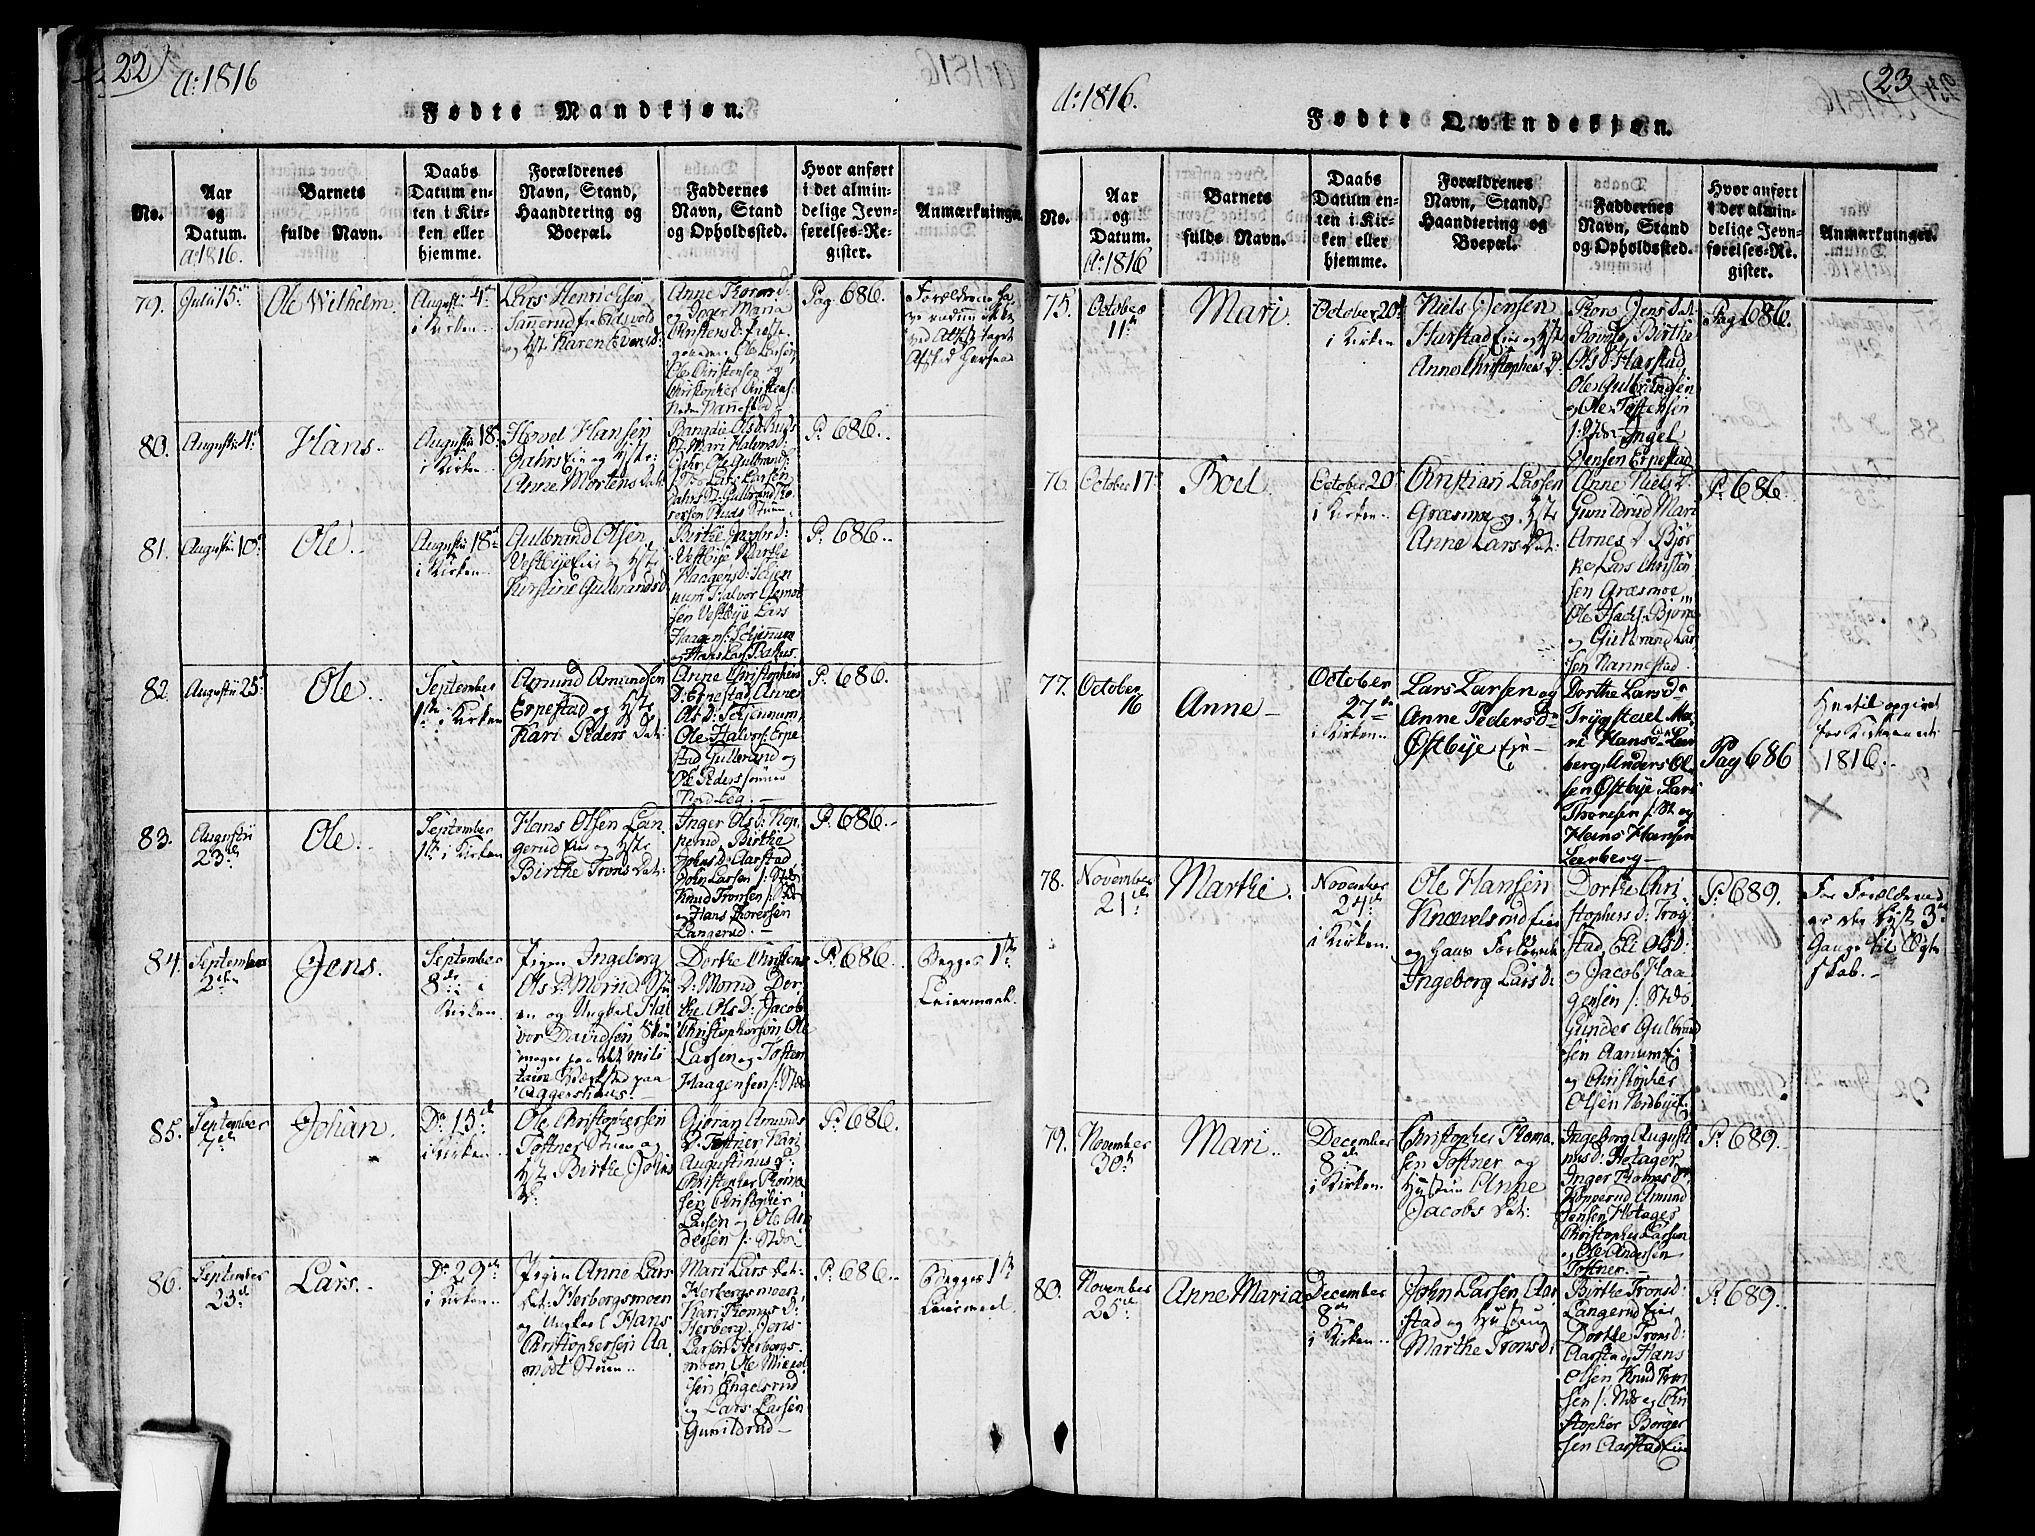 22
a: 1816
Fødte Mandkjøn.
No.
Aar
og
Datum.
a: 1816.
Barnets
fulde Navn.
Daabs
Datum en-
ten i Kir-
ken eller
hjemme.
Forældrenes
Navn, Stand,
Haandtering og
Boepæl.
Faddernes
Navn, Stand
og Opholdssted.
Hvor anført
i det almin-
delige Jevn-
førelses-Re-
gister.
Anmærkninger.
79.
Julii 15de
Ole Wilhelm.
Augustii 4de
i Kirken..
Lars Henrichsen
Sannerud fra Eidsvold
og Hst. Karen Evensd:
Anne Thorsd:
og Inger Maria
Christensd:
Ole Larsen
Ole Christensen og
Christopher Christens:
Nedre Nannestad
Pag: 686.
80.
Augustii 4de
Hans..
Augustii 18
i Kirken..
Hovel Hansen
Dahrs Eier og Hst:
Anne Mortens Dat:
P: 686..
81.
Augustii 10de
Ole..
Augustii 18de
i Kirken..
Gulbrand Olsen
Vestbye Eier og Hst:
Kirstine Gulbrandsd:
Birthe Jacobsd:
Vestbye Marthe
Haagensd: Schjen
num Halvor
sen Vestbye Lars
Haagens: Schjennum
og Hans Lars:
P: 686..
82.
Augustii 25de
Ole..
September
1ste i Kirken
Amund Amundsen
Erpestad og Hst:
Kari Peders Dat:
Anne Christophers
D: Erpestad Anne
Ols D: Schjennum,
Ole Halvors: Erpe
stad Gulbrand og
Ole Pederssønner
Nordbÿe.—
P: 686.
83.
Augustii
23de
Ole..
September
1ste i Kirken
Hans Olsen Lan
gerud Eier og Hst:
Birthe Trons Dat:
Inger Ols D: Kop
perud, Birthe
Johns D: Aarstad
John Larsen /: Stds
Knud Tronsen /: Stds
og Hans Thoresen
Langerud.—
P: 686..
84.
September
2den
Jens.
September
8de i
Kirken..
Pigen Ingeborg
Ols D: Morud Stu
en og Ungkel Hal
vor Davidsen Skou
mager paa det mili
taire Værksted paa
Aggershuus.—
Dorthe Christens
D: Morud Dor
the Ols D: Jacob
Christophersen Ole
Larsen og Tosten
Haagensen /: Stds
P: 686..
Begges 1ste
Leiermaal.
85.
September
7de
Johan.
Do 15de
i Kirken..
Ole Christophersen
Toftner Stuen og
Hst Birthe Johns
D:
Gjøran Amunds
D: Toftner Kari
Augustinus D:
Christopher Thoma
sen Christopher
Larsen og Ole An
dersen /: Stds
P: 686.
86.
September
23de
Lars..
Do 29de
i Kirken..
Pigen Anne Lars
Dat: Herbergsmoen
og Ungkel Hans
Christophersen Aa
modt Stuen..
Mari Lars Dat:
Herbergsmoen,
Kari Thomas D:
Herberg, Jens
Larsen Herbergs
moen, Ole
sen Engelsrud
og Lars Larsen
Gunildrud—
P: 686..
Begges 1ste
Leiermaal.
23
A: 1816.
Fødte Qvindekjøn.
No.
Aar
og
Datum.
A: 1816
Barnets
fulde Navn.
Daabs
Datum en-
ten i Kir-
ken eller
hjemme.
Forældrenes
Navn, Stand,
Haandtering og
Boepæl.
Faddernes
Navn, Stand
og Opholdssted.
Hvor anført
i det almin-
delige Jevn-
førelses-Re-
gister.
Anmærkninger.
75.
October
11te
Mari.
October 20de
i Kirken
Niels Jensen
Harstad Eier og Hst:
Anne Christophers D:
Jens Dat:
Birthe
Ols D: Harstad
Ole Gulbrandsen
og Ole Tostensen
/: Stds Ingel
Jensen Erpestad
Pag: 686.
76.
October 17de
Boel.
October 20de
i Kirken..
Christian Larsen
Græsmoe og Hst:
Anne Lars Dat:
Anne Niels D:
Gunildrud Mari
Arnes D: Bjør
ke Lars Christen
sen Græsmoe,
Ole Bjørke
og Gulbrand Lar
sen Nannestad
P: 686.
77.
October
16
Anne—
October
27de
i Kirken..
Lars Larsen og
Anne Pedersd
Østbye Eier—
Dorthe Larsd
Trygstad Ma
ri Hansd Leer
berg, Anders Ol
sen Østbye Lars
Thoresen /: St: og
Hans Hansen
Leerberg—
Pag 686
1816.—
78.
November
21de
Marthe.
November
24de
i Kirken.
Ole Hansen
Knævelsrud Eier
og hans Forlovede
Ingeborg Lars D:
Dorthe Chri
stophers D: Tryg
stad, Eli Ols D:
og Jacob Haa
gensen /: Stds
Gunder Gulbrand
sen Aanum
og Christopher
Olsen Nordbÿe
P: 689.
For Forældrene
er der lyst 3de
Gange til Ægte
skab.—
79.
November
30te
Mari..
December
8de
i Kirken.
Christopher Thoma
sen Toftner og
Hustru Anne
Jacobs Dat:
Ingeborg Augusti
nusd: Hetager
Inger Thomas D
Kopperud Amund
Jensen Hetager
Christopher Larsen
og Ole Andersen
Toftner.—
P: 689..
80.
November
25de
Anne Maria
December
8de
i Kirken..
John Larsen Aar
stad og Hustrue
Marthe Tronsd:
Birthe Tronsd:
Langerud Eier
Dorthe Tronsd:
Aarstad, Hans
Olsen Knud Tron
sen /: Stds og Chri
stopher Børger
sen Aarstad Eier
P: 689.